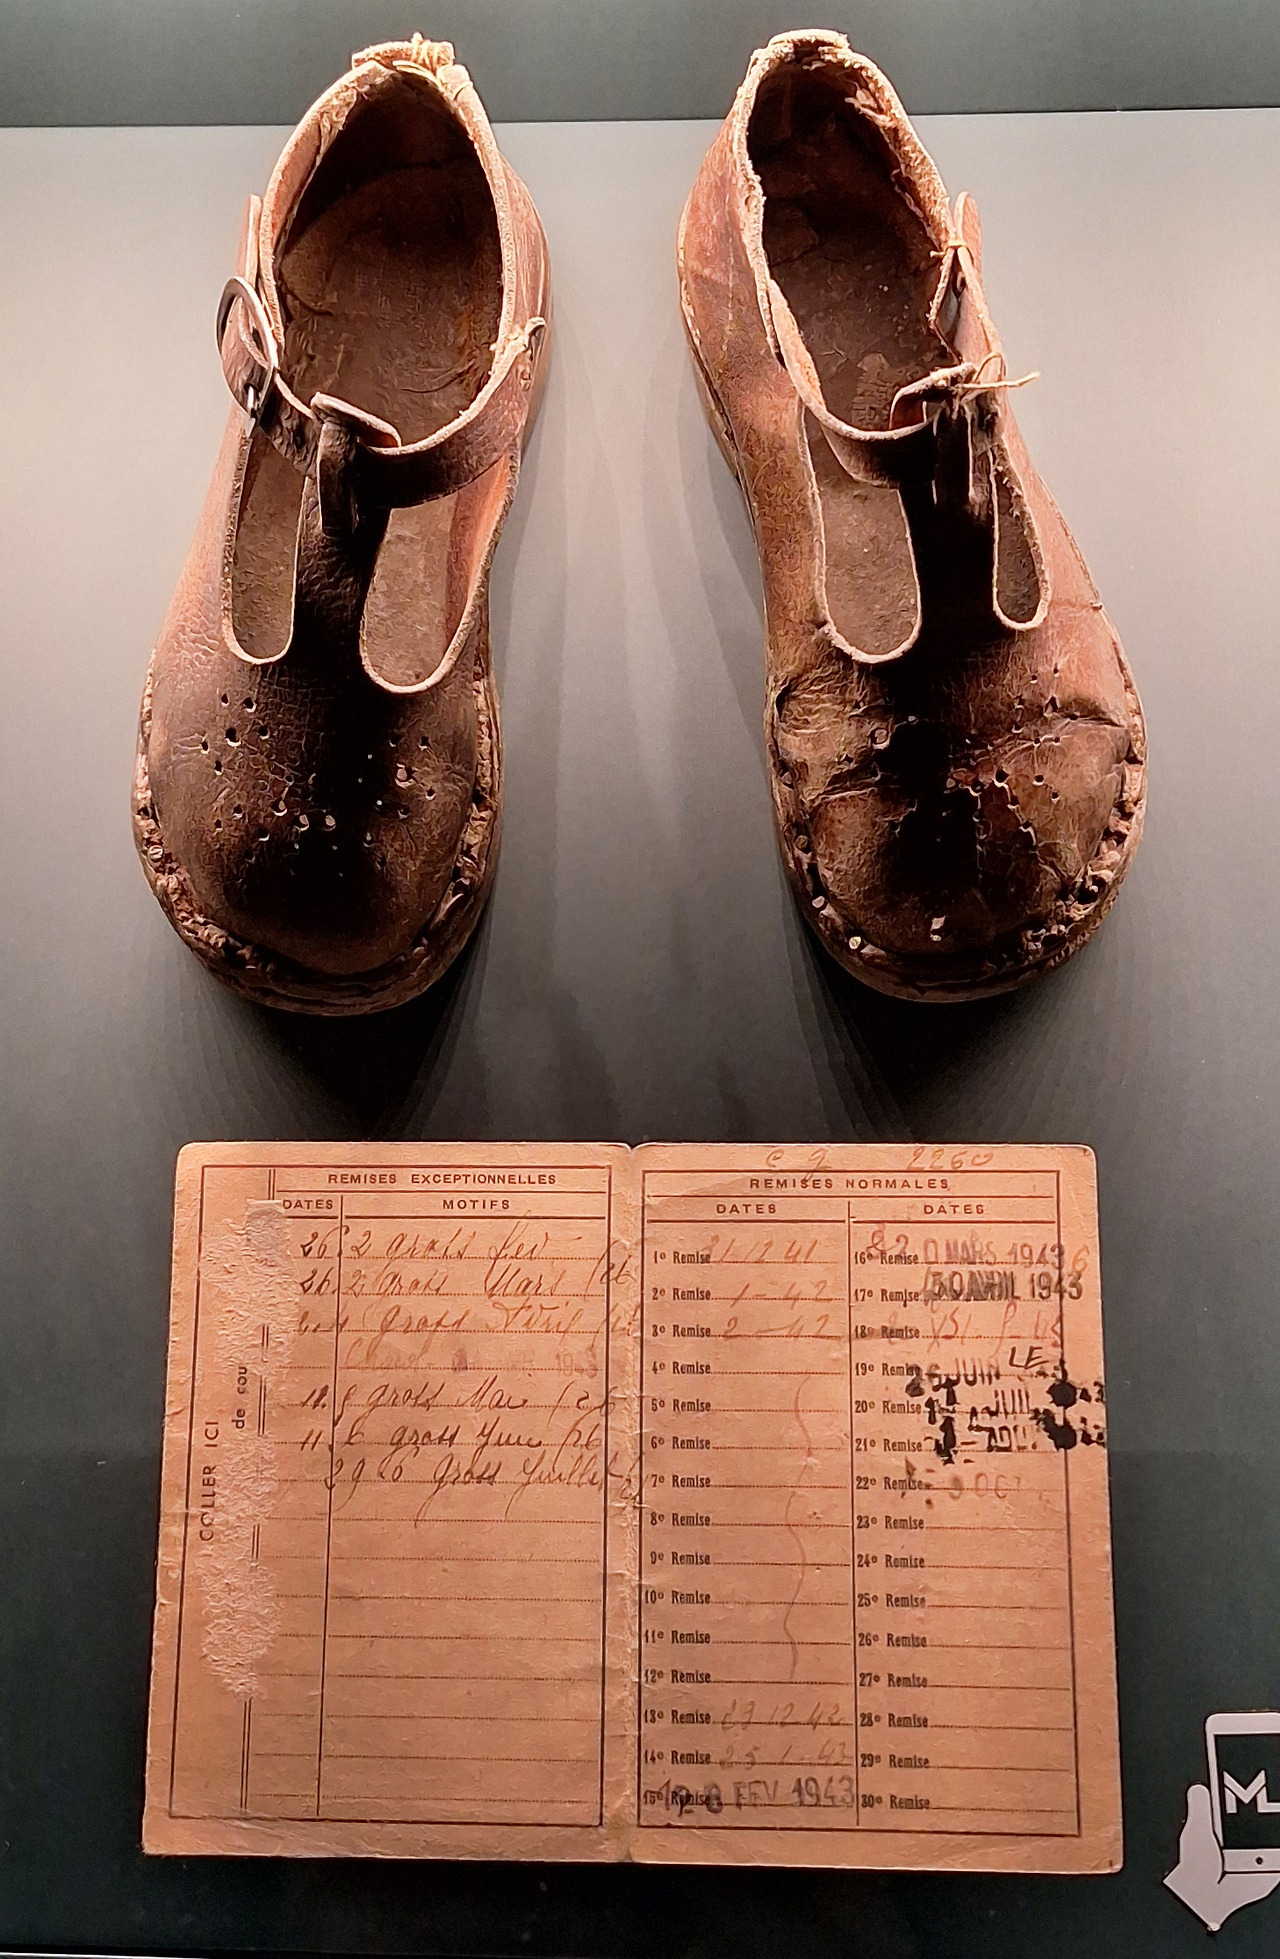 REMISES EXCEPTIONNELLES
DATES MOTIFS
26 2 gross fev
26 2 gross Mars (26
gross Avril
1943
11. gross Mai (26
11. 6 gross Juin (26
29 6 gross Juillet
COLLER ICI
de cou
2260
REMISES NORMALES
DATES DATES
1e Remise 21-12 41
2e Remise 1-42
3e Remise 2-42
4e Remise
5e Remise
6e Remise
7e Remise
8e Remise
9e Remise
10e Remise
11e Remise
12e Remise
13e Remise 23 12 42
14e Remise 25 1-43
15e Remise FEV 1943
16e Remise MARS 1943
17e Remise 30 AVRIL 1943
18e Remise
19e Remise 26 JUIN LE
20e Remise JUIL
21e Remise
22e Remise 9 OCT
23e Remise
24e Remise
25e Remise
26e Remise
27e Remise
28e Remise
29e Remise
30e Remise